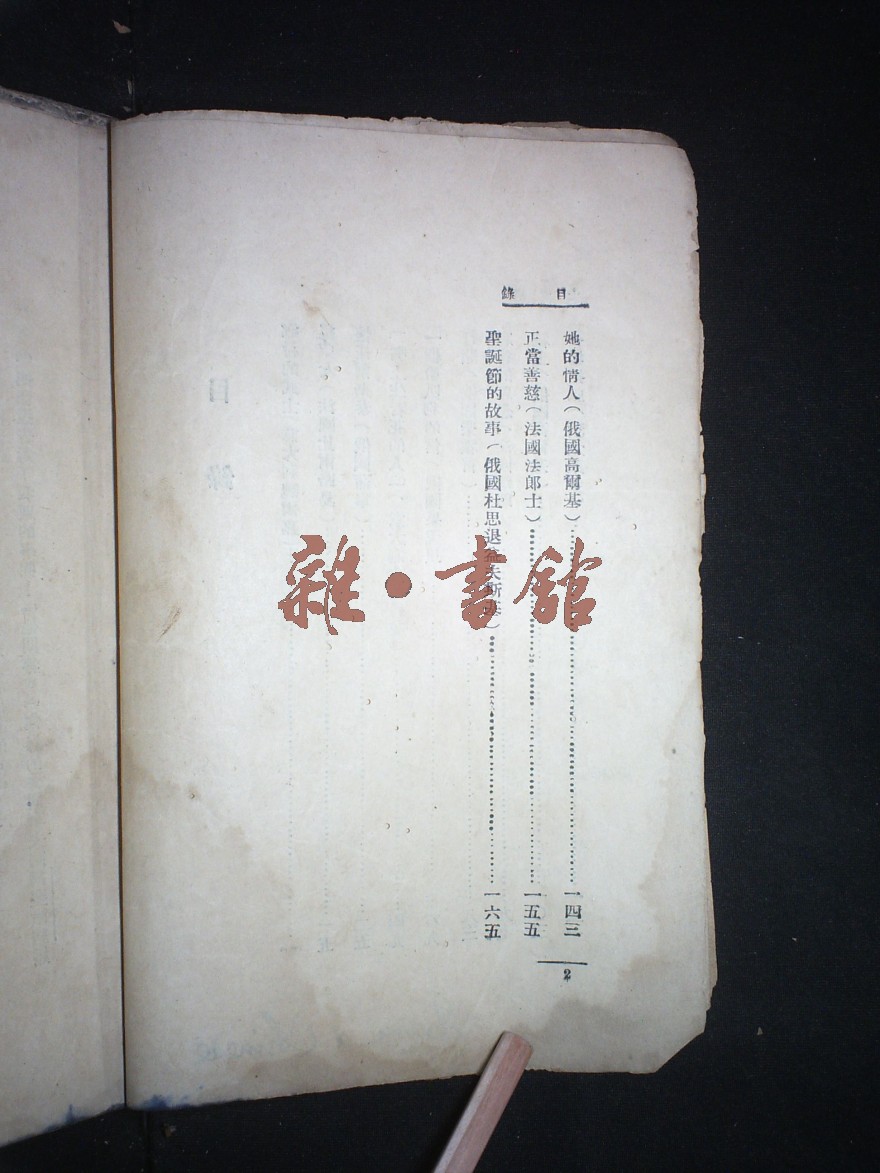 目錄
她的情人（俄國高爾基）……一四三
正當善慈（法國法郎士）……一五五
聖誕節的故事（俄國杜思退益夫斯基）……一六五
2
雜·書館